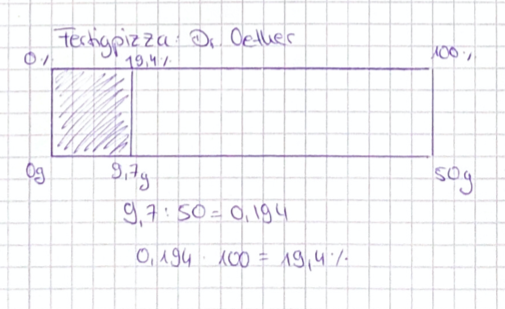 Fertigpizza: Dr. Oetker
0% 19,4% 100%
0g 9,7g 50g
9,7 : 50 = 0,194
0,194 · 100 = 19,4%